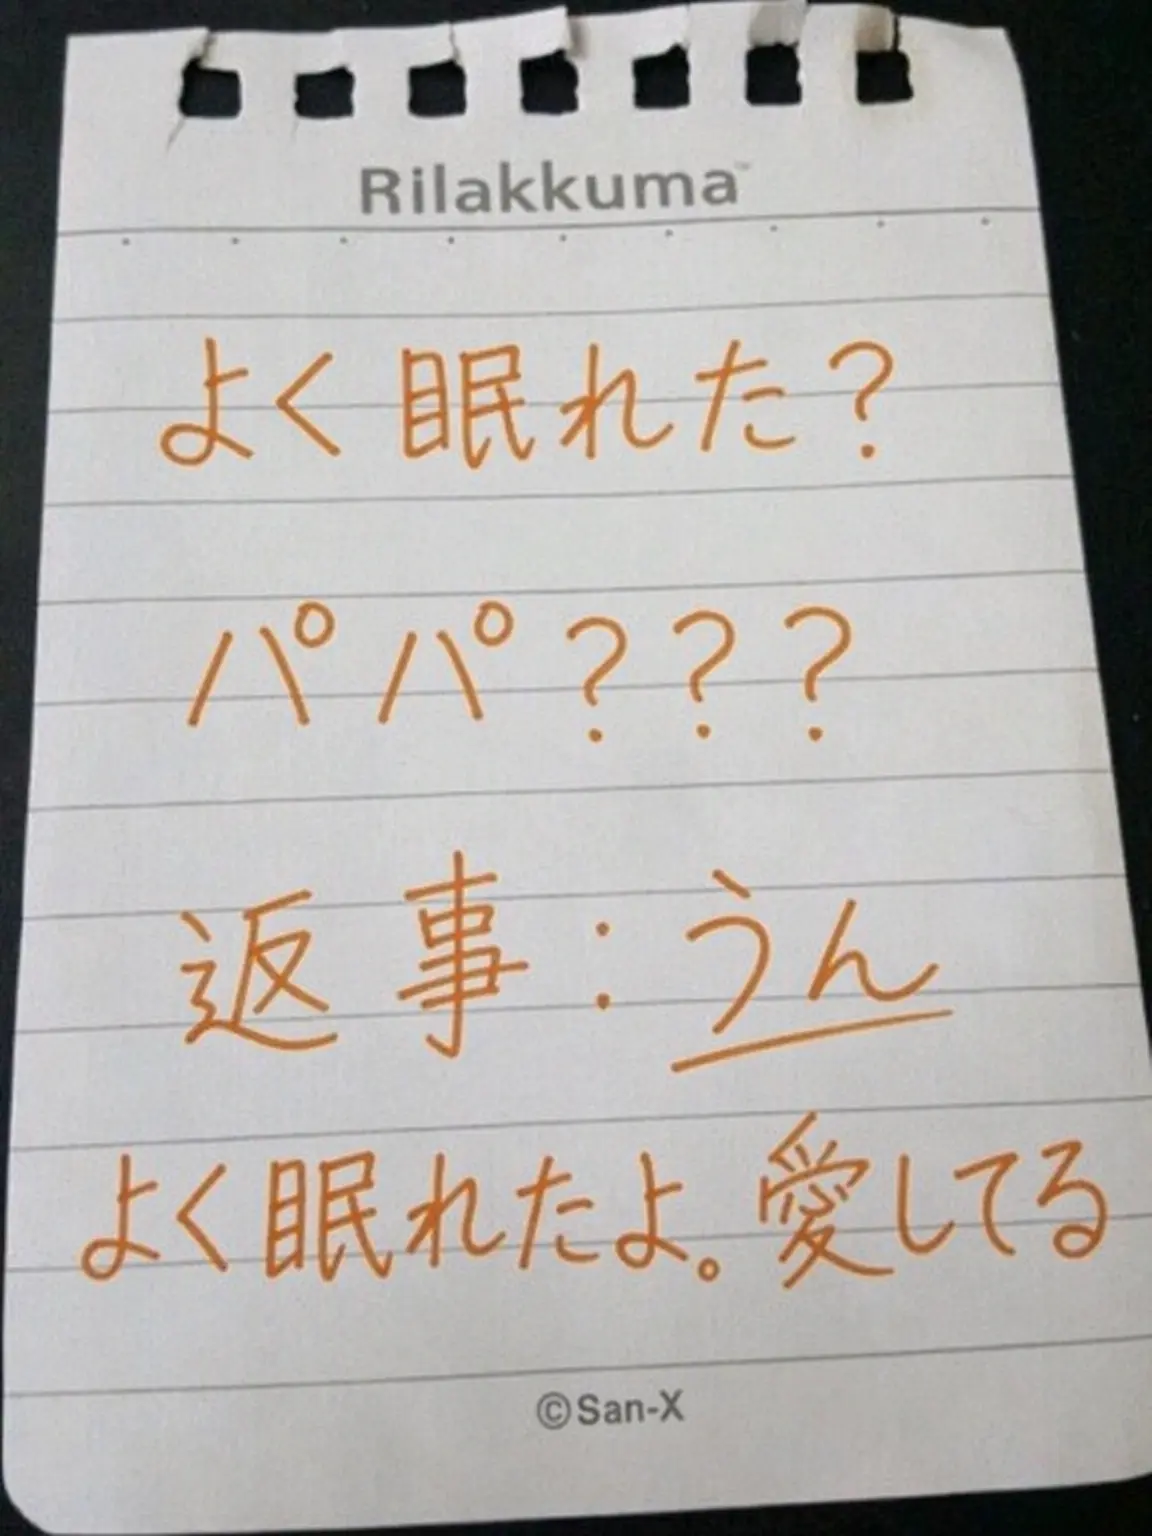 Rilakkuma™
よく眠れた?
パパ???
返事:うん
よく眠れたよ。愛してる
©San-X